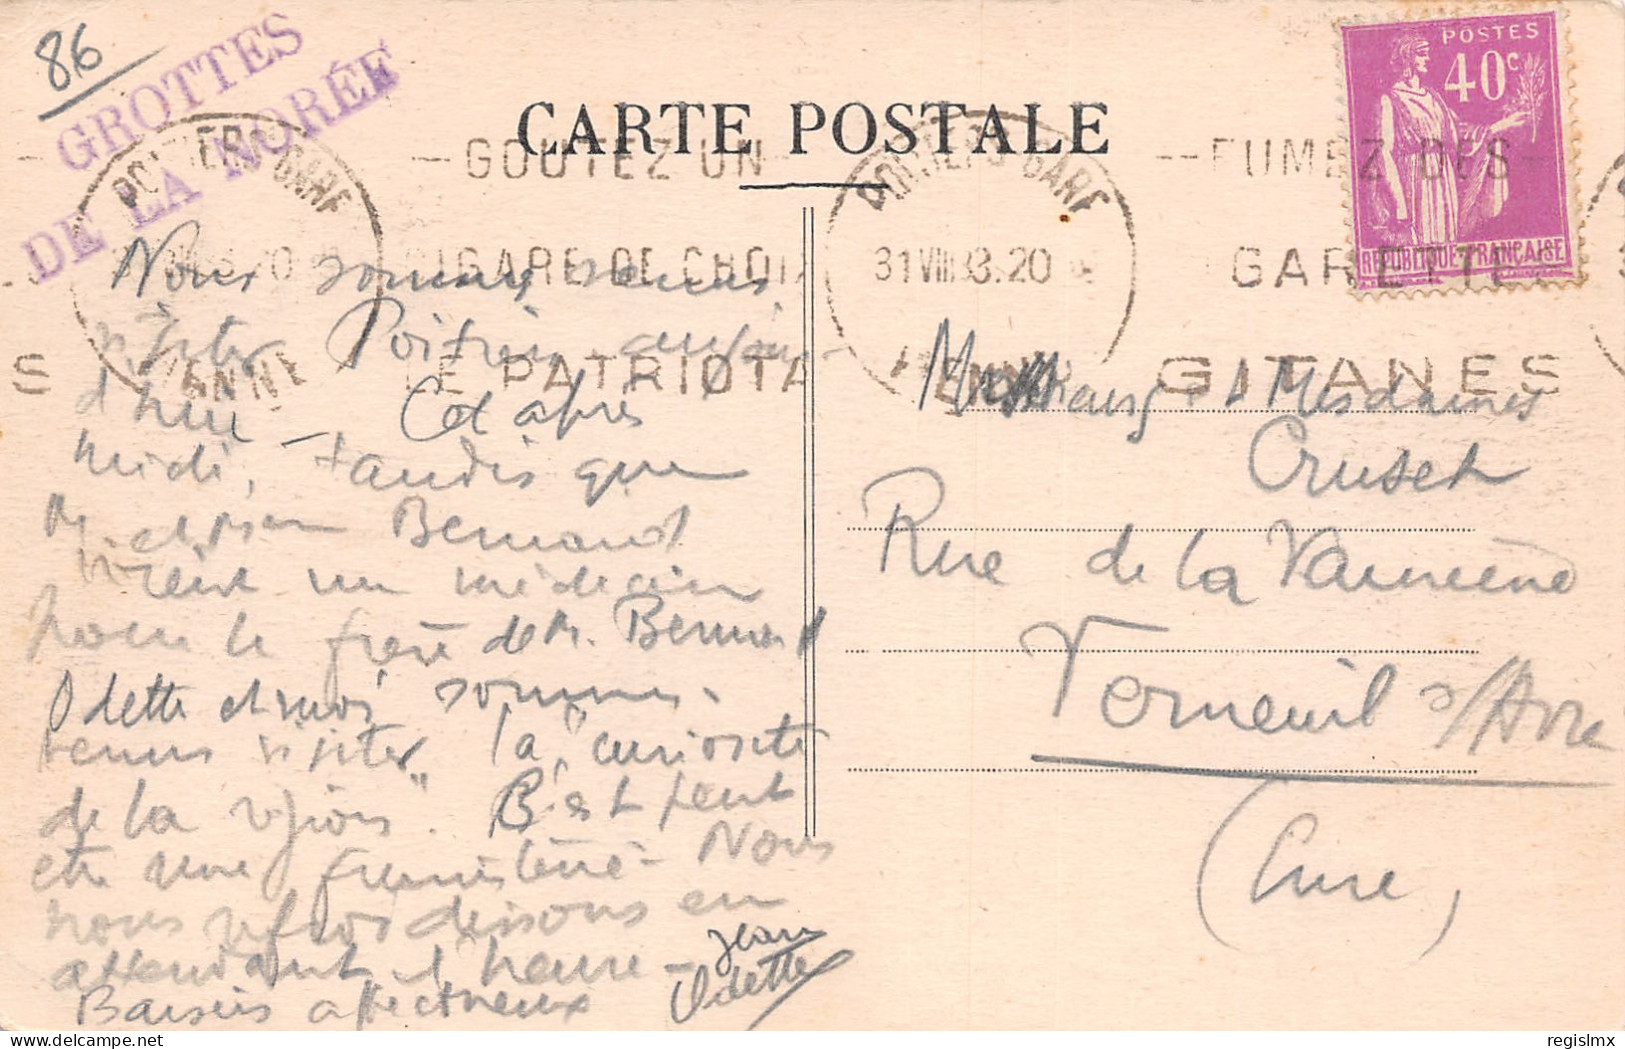 86
GROTTES
DE LA NORÉE
CARTE POSTALE
POSTES
40c
REPUBLIQUE FRANÇAISE
POITIERS-GARE
31 VIII 33.20
VIENNE
--GOUTEZ UN
CIGARE DE CHOI
LE PATRIOTA
--FUMEZ DES--
GARETTE
GITANES
S
Nous sommes venus
visiter Poitiers aujour-
d'hui - Cet après
midi, tandis que
M. et Mme Bernard
virent un médecin
pour le frère de M. Bernard
Odette et moi sommes
venus visiter la "curiosité
de la région". C'est peut
être une fumisterie - Nous
nous refroidissons en
attendant l'heure -
Baisers affectueux
Jean
Odette
Messieurs & Mesdames
Cruset
Rue de la
Verneuil s/Avre
(Eure)
regislmx